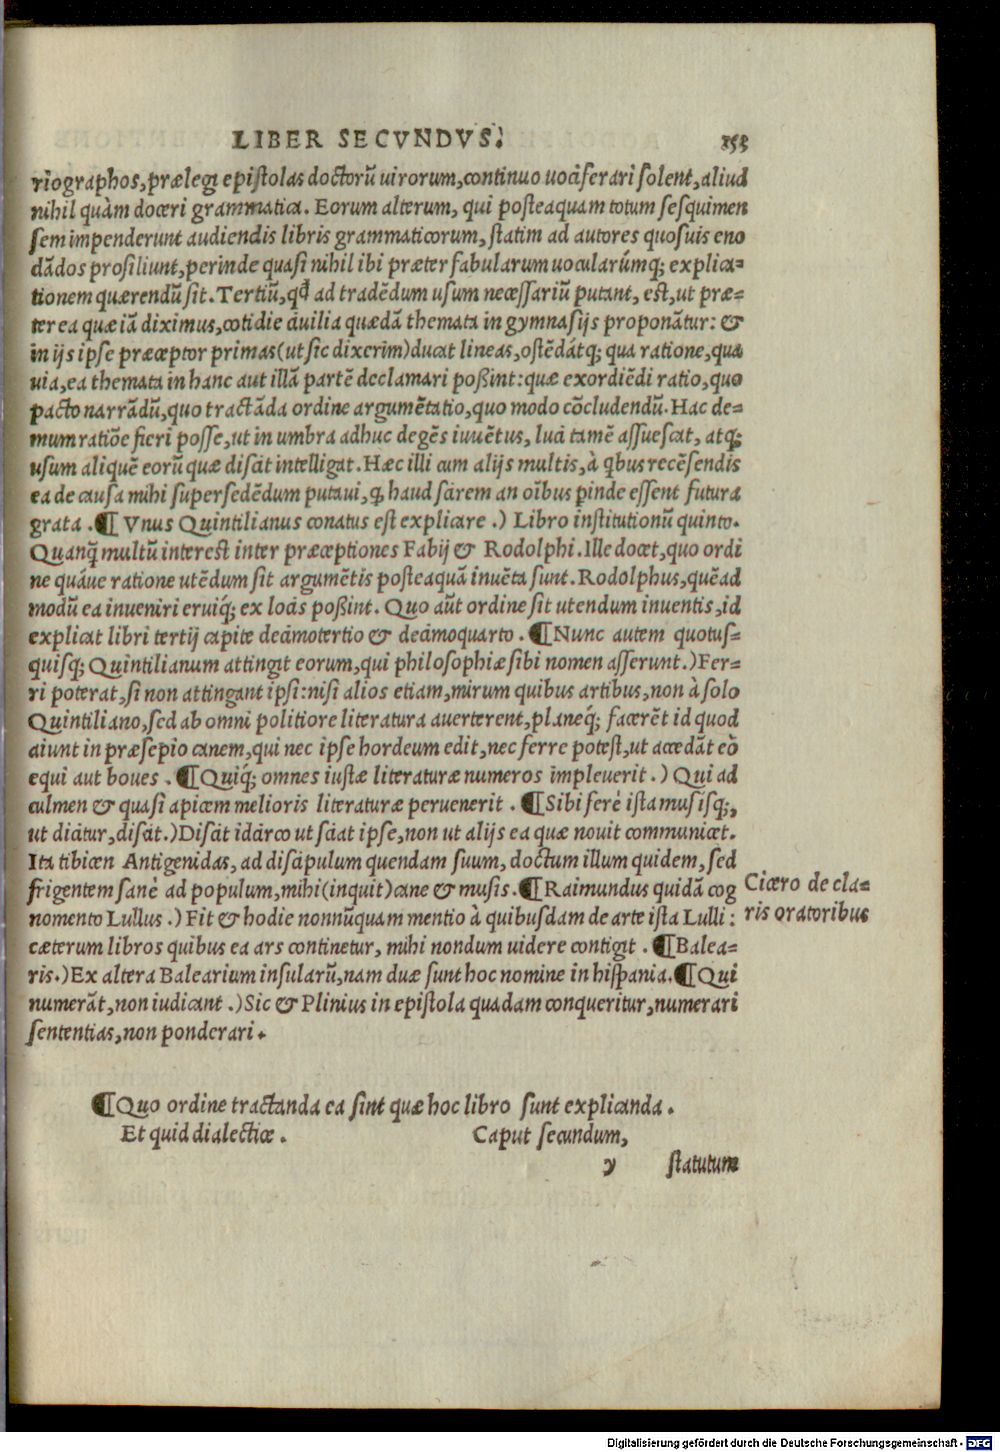 LIBER SECVNDVS. 153
riographos, prælegi epistolas doctorū uirorum, continuo uociferari solent, aliud
nihil quàm doceri grammatica. Eorum alterum, qui posteaquam totum sesquimen
sem impenderunt audiendis libris grammaticorum, statim ad autores quosuis eno
dādos prosiliunt, perinde quasi nihil ibi præter fabularum uocularúmq; explica=
tionem quærendū sit. Tertiū, qđ ad tradēdum usum necessariū putant, est, ut præ=
ter ea quæ iā diximus, cotidie ciuilia quædā themata in gymnasijs proponātur: &
in ijs ipse præceptor primas (ut sic dixerim) ducat lineas, ostēdátq; qua ratione, qua
uia, ea themata in hanc aut illā partē declamari poßint: quæ exordiēdi ratio, quo
pacto narrādū, quo tractāda ordine argumētatio, quo modo cōcludendū. Hac de=
mum ratiōe fieri posse, ut in umbra adhuc degēs iuuētus, luci tamē assuescat, atq;
usum aliquē eorū quæ discit intelligat. Hæc illi cum alijs multis, à qbus recēsendis
ea de causa mihi supersedēdum putaui, ꝙ haud scirem an oībus ꝑinde essent futura
grata. ¶ Vnus Quintilianus conatus est explicare.) Libro institutionū quinto.
Quanq̄ multū interest inter præceptiones Fabij & Rodolphi. Ille docet, quo ordi
ne quáue ratione utēdum sit argumētis posteaquā inuēta sunt. Rodolphus, quēad
modū ea inueniri eruiq́; ex locis poßint. Quo aūt ordine sit utendum inuentis, id
explicat libri tertij capite decimotertio & decimoquarto. ¶ Nunc autem quotus=
quisq; Quintilianum attingit eorum, qui philosophiæ sibi nomen asserunt.) Fer=
ri poterat, si non attingant ipsi: nisi alios etiam, mirum quibus artibus, non à solo
Quintiliano, sed ab omni politiore literatura auerterent, planeq́; facerēt id quod
aiunt in præsepio canem, qui nec ipse hordeum edit, nec ferre potest, ut accedāt eò
equi aut boues. ¶ Quiq́; omnes iustæ literaturæ numeros impleuerit.) Qui ad
culmen & quasi apicem melioris literaturæ peruenerit. ¶ Sibi ferè ista musisq;,
ut dicitur, discit.) Discit idcirco ut sciat ipse, non ut alijs ea quæ nouit communicet.
Ita tibicen Antigenidas, ad discipulum quendam suum, doctum illum quidem, sed
frigentem sanè ad populum, mihi (inquit) cane & musis. ¶ Raimundus quidā cog
nomento Lullus.) Fit & hodie nonnūquam mentio à quibusdam de arte ista Lulli:
cæterum libros quibus ea ars continetur, mihi nondum uidere contigit. ¶ Balea=
ris.) Ex altera Balearium insularū, nam duæ sunt hoc nomine in hispania. ¶ Qui
numerāt, non iudicant.) Sic & Plinius in epistola quadam conqueritur, numerari
sententias, non ponderari.
Cicero de cla=
ris oratoribus
¶ Quo ordine tractanda ea sint quæ hoc libro sunt explicanda.
Et quid dialectice. Caput secundum,
y statutum
Digitalisierung gefördert durch die Deutsche Forschungsgemeinschaft - DFG